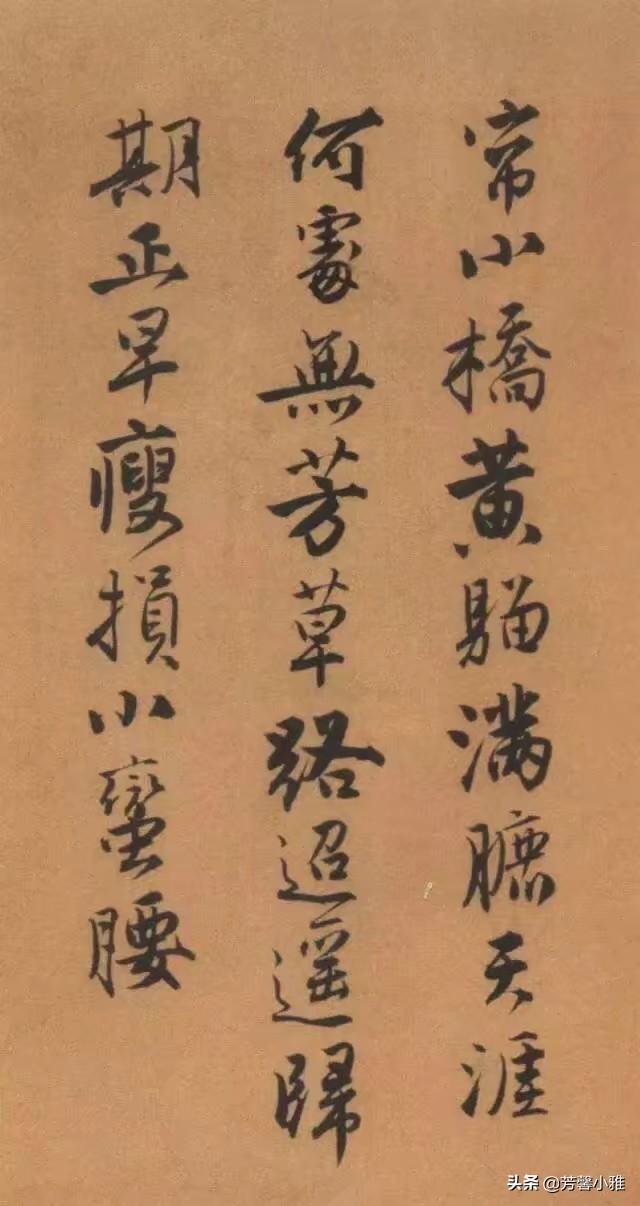 帘小橋黄騮滿臕天涯
何處無芳草路迢遥歸
期正早瘦損小蠻腰
头条 @芳馨小雅